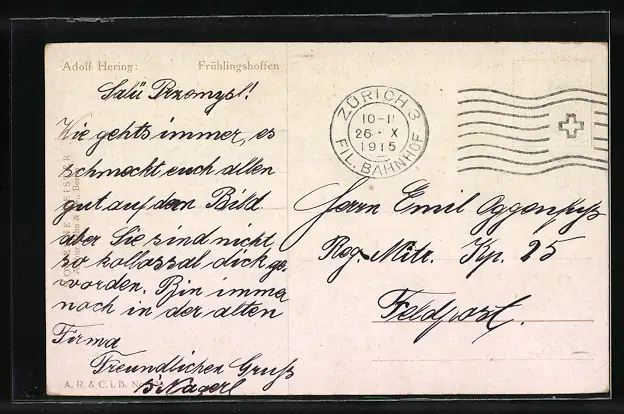 Adolf Hering: Frühlingshoffen
Salü Przemysl!
Wie gehts immer, es
schmeckt euch allen
gut auf dem Bild
aber Sie sind nicht
so kollossal dick ge-
worden. Bin immer
noch in der alten
Firma
Freundlichen Gruß
A. R. & C. i. B. N
ZÜRICH 3
10-11
26 · X
1915
FIL. BAHNHOF
Herrn Emil Oggenfuss
Reg. Mitr. Kp. 25
Feldpost.